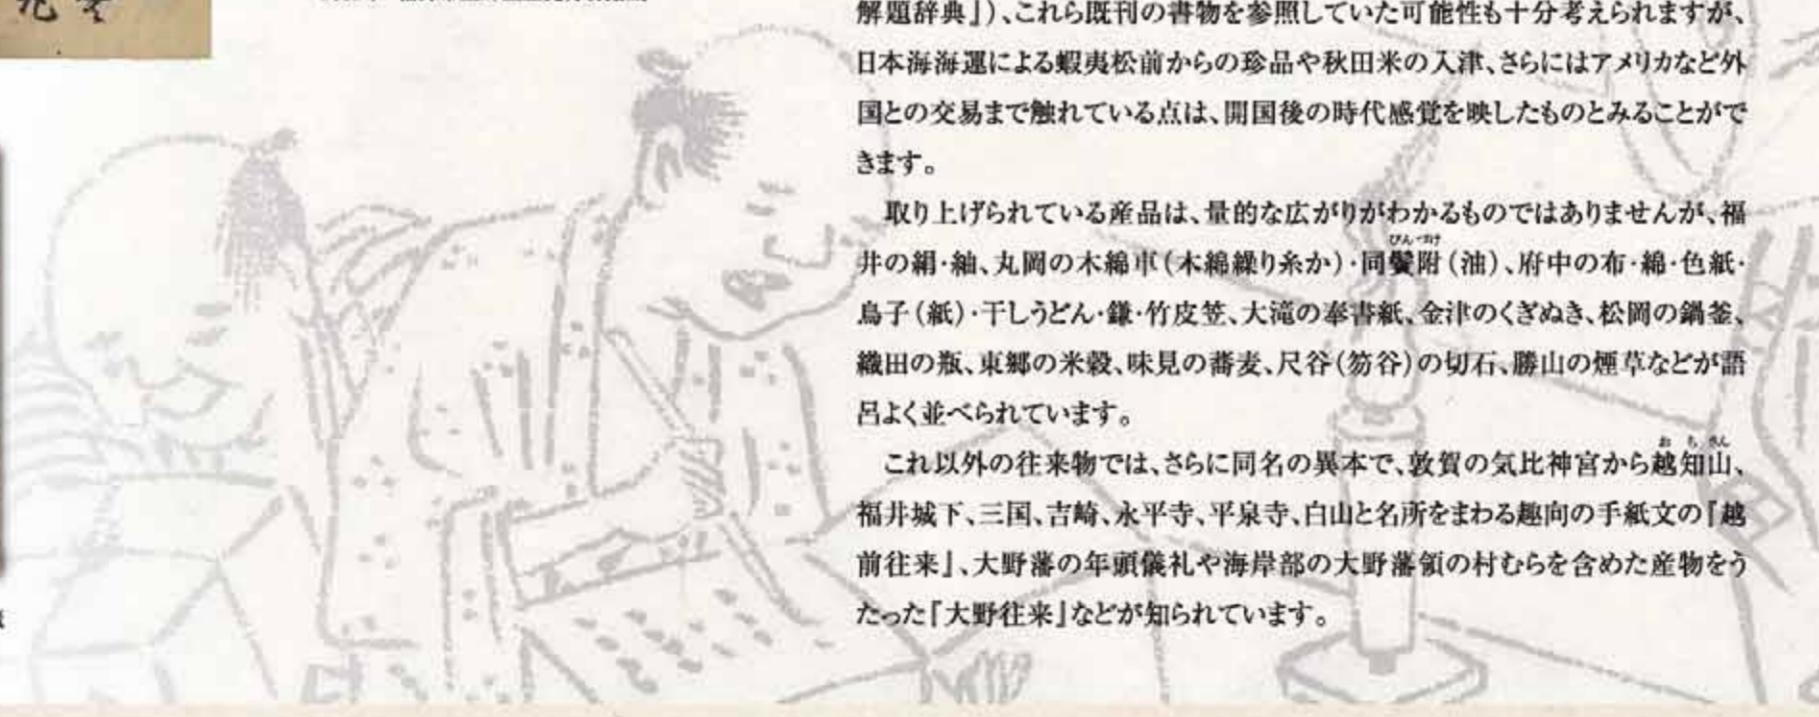 解題辞典』)、これら既刊の書物を参照していた可能性も十分考えられますが、
日本海海運による蝦夷松前からの珍品や秋田米の入津、さらにはアメリカなど外
国との交易まで触れている点は、開国後の時代感覚を映したものとみることがで
きます。
取り上げられている産品は、量的な広がりがわかるものではありませんが、福
井の絹・紬、丸岡の木綿車(木綿繰り糸か)・同鬢附(油)、府中の布・綿・色紙・
鳥子(紙)・干しうどん・鎌・竹皮笠、大滝の奉書紙、金津のくぎぬき、松岡の鍋釜、
織田の瓶、東郷の米穀、味見の蕎麦、尺谷(笏谷)の切石、勝山の煙草などが語
呂よく並べられています。
これ以外の往来物では、さらに同名の異本で、敦賀の気比神宮から越知山、
福井城下、三国、吉崎、永平寺、平泉寺、白山と名所をまわる趣向の手紙文の『越
前往来』、大野藩の年頭儀礼や海岸部の大野藩領の村むらを含めた産物をう
たった『大野往来』などが知られています。